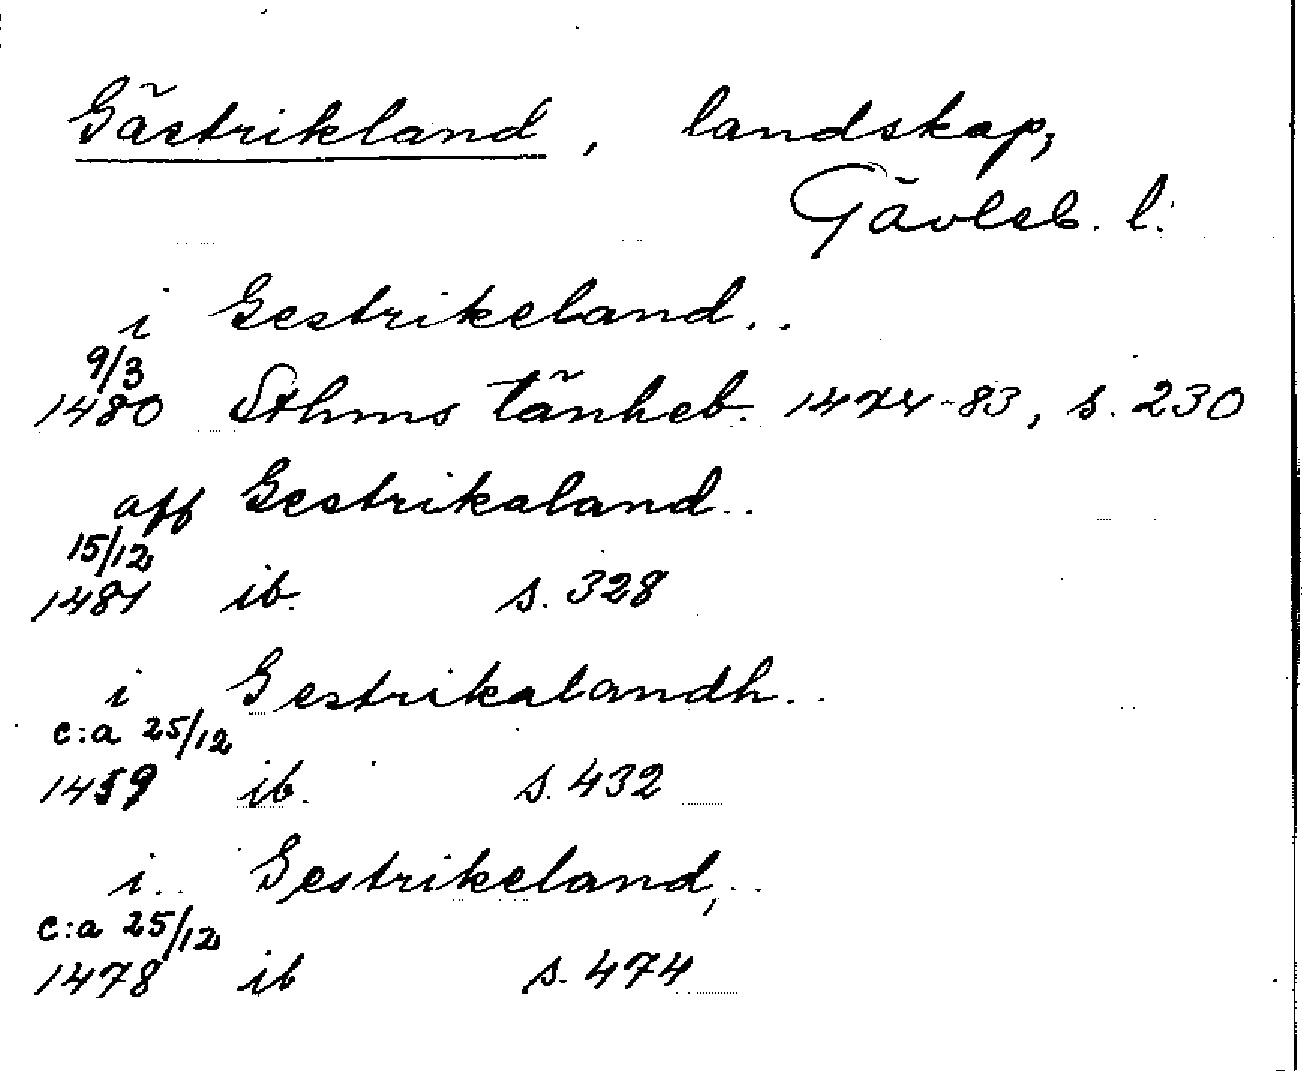 Gästrikland, landskap,
Gävleb. l.
i Gestrikeland..
9/3
1480 Sthms tänkeb. 1474-83, s. 230
aff Gestrikaland..
15/12
1481 ib. s. 328
i Gestrikalandh..
c:a 25/12
1459 ib. s. 432
i.. Gestrikeland,..
c:a 25/12
1478 ib s. 474